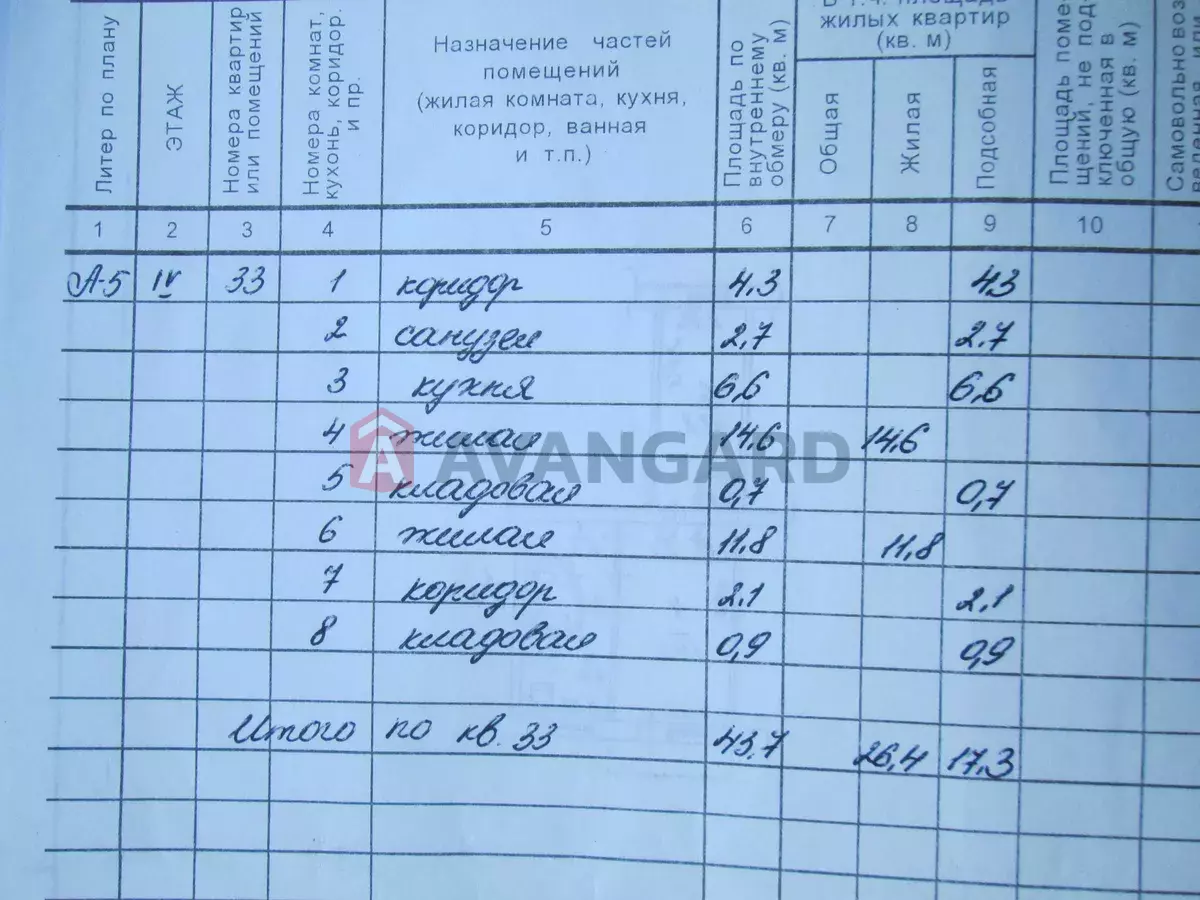 Литер по плану
ЭТАЖ
Номера квартир
или помещений
Номера комнат,
кухонь, коридор.
и пр.
Назначение частей
помещений
(жилая комната, кухня,
коридор, ванная
и т.п.)
Площадь по
внутреннему
обмеру (кв. м)
В т.ч. площадь
жилых квартир
(кв. м)
Общая
Жилая
Подсобная
Площадь поме-
щений, не под-
ключенная в
общую (кв. м)
Самовольно воз
1 2 3 4 5 6 7 8 9 10
А-5 IV 33 1 коридор 4.3 43
2 санузел 2,7 2.7
3 кухня 6,6 6,6
4 жилая 14,6 14,6
AVANGARD
5 кладовая 0,7 0,7
6 жилая 11.8 11,8
7 коридор 2.1 2,1
8 кладовая 0,9 0,9
Итого по кв. 33 43,7 26,4 17,3